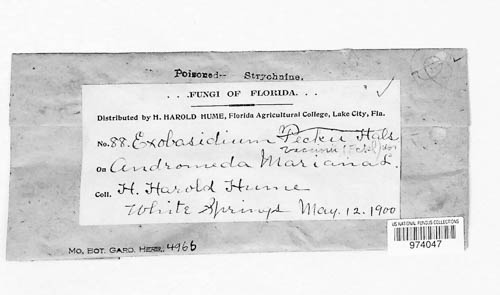 Poisoned-- Strychnine.
. . .FUNGI OF FLORIDA. . .
Distributed by H. HAROLD HUME, Florida Agricultural College, Lake City, Fla.
No. 88. Exobasidium Peckii Hals
vaccinii (Fckl) Wor
On Andromeda Mariana L.
Coll. H. Harold Hume
White Springs May. 12. 1900
US NATIONAL FUNGUS COLLECTIONS
974047
MO. BOT. GARD. HERB. 4966